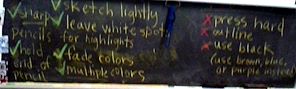 ✓ sharp
pencils
✓ hold
end of
pencil
✓ sketch lightly
✓ leave white spots
for highlights
✓ fade colors
✓ multiple colors
✗ press hard
✗ outline
✗ use black
(use brown, blue,
or purple instead)